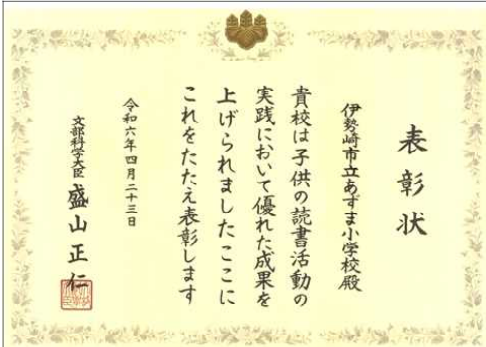 表彰状
伊勢崎市立あずま小学校殿
貴校は子供の読書活動の
実践において優れた成果を
上げられましたここに
これをたたえ表彰します
令和六年四月二十三日
文部科学大臣 盛山正仁